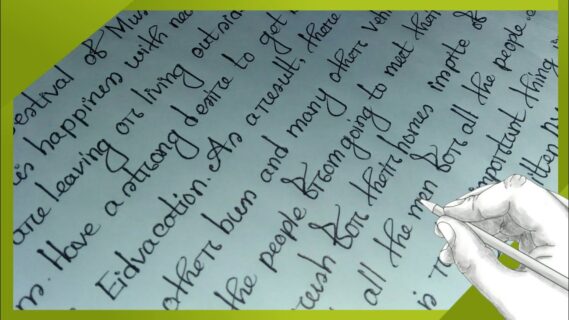 estival of Mus
happiness with
are leaving or living outsid
Have a strong desire to get
Eidvacation. As a result, there
others buss and many other vehi
the people from going to meet their
rush for their homes inspite of
all the men for all the people
is important thing